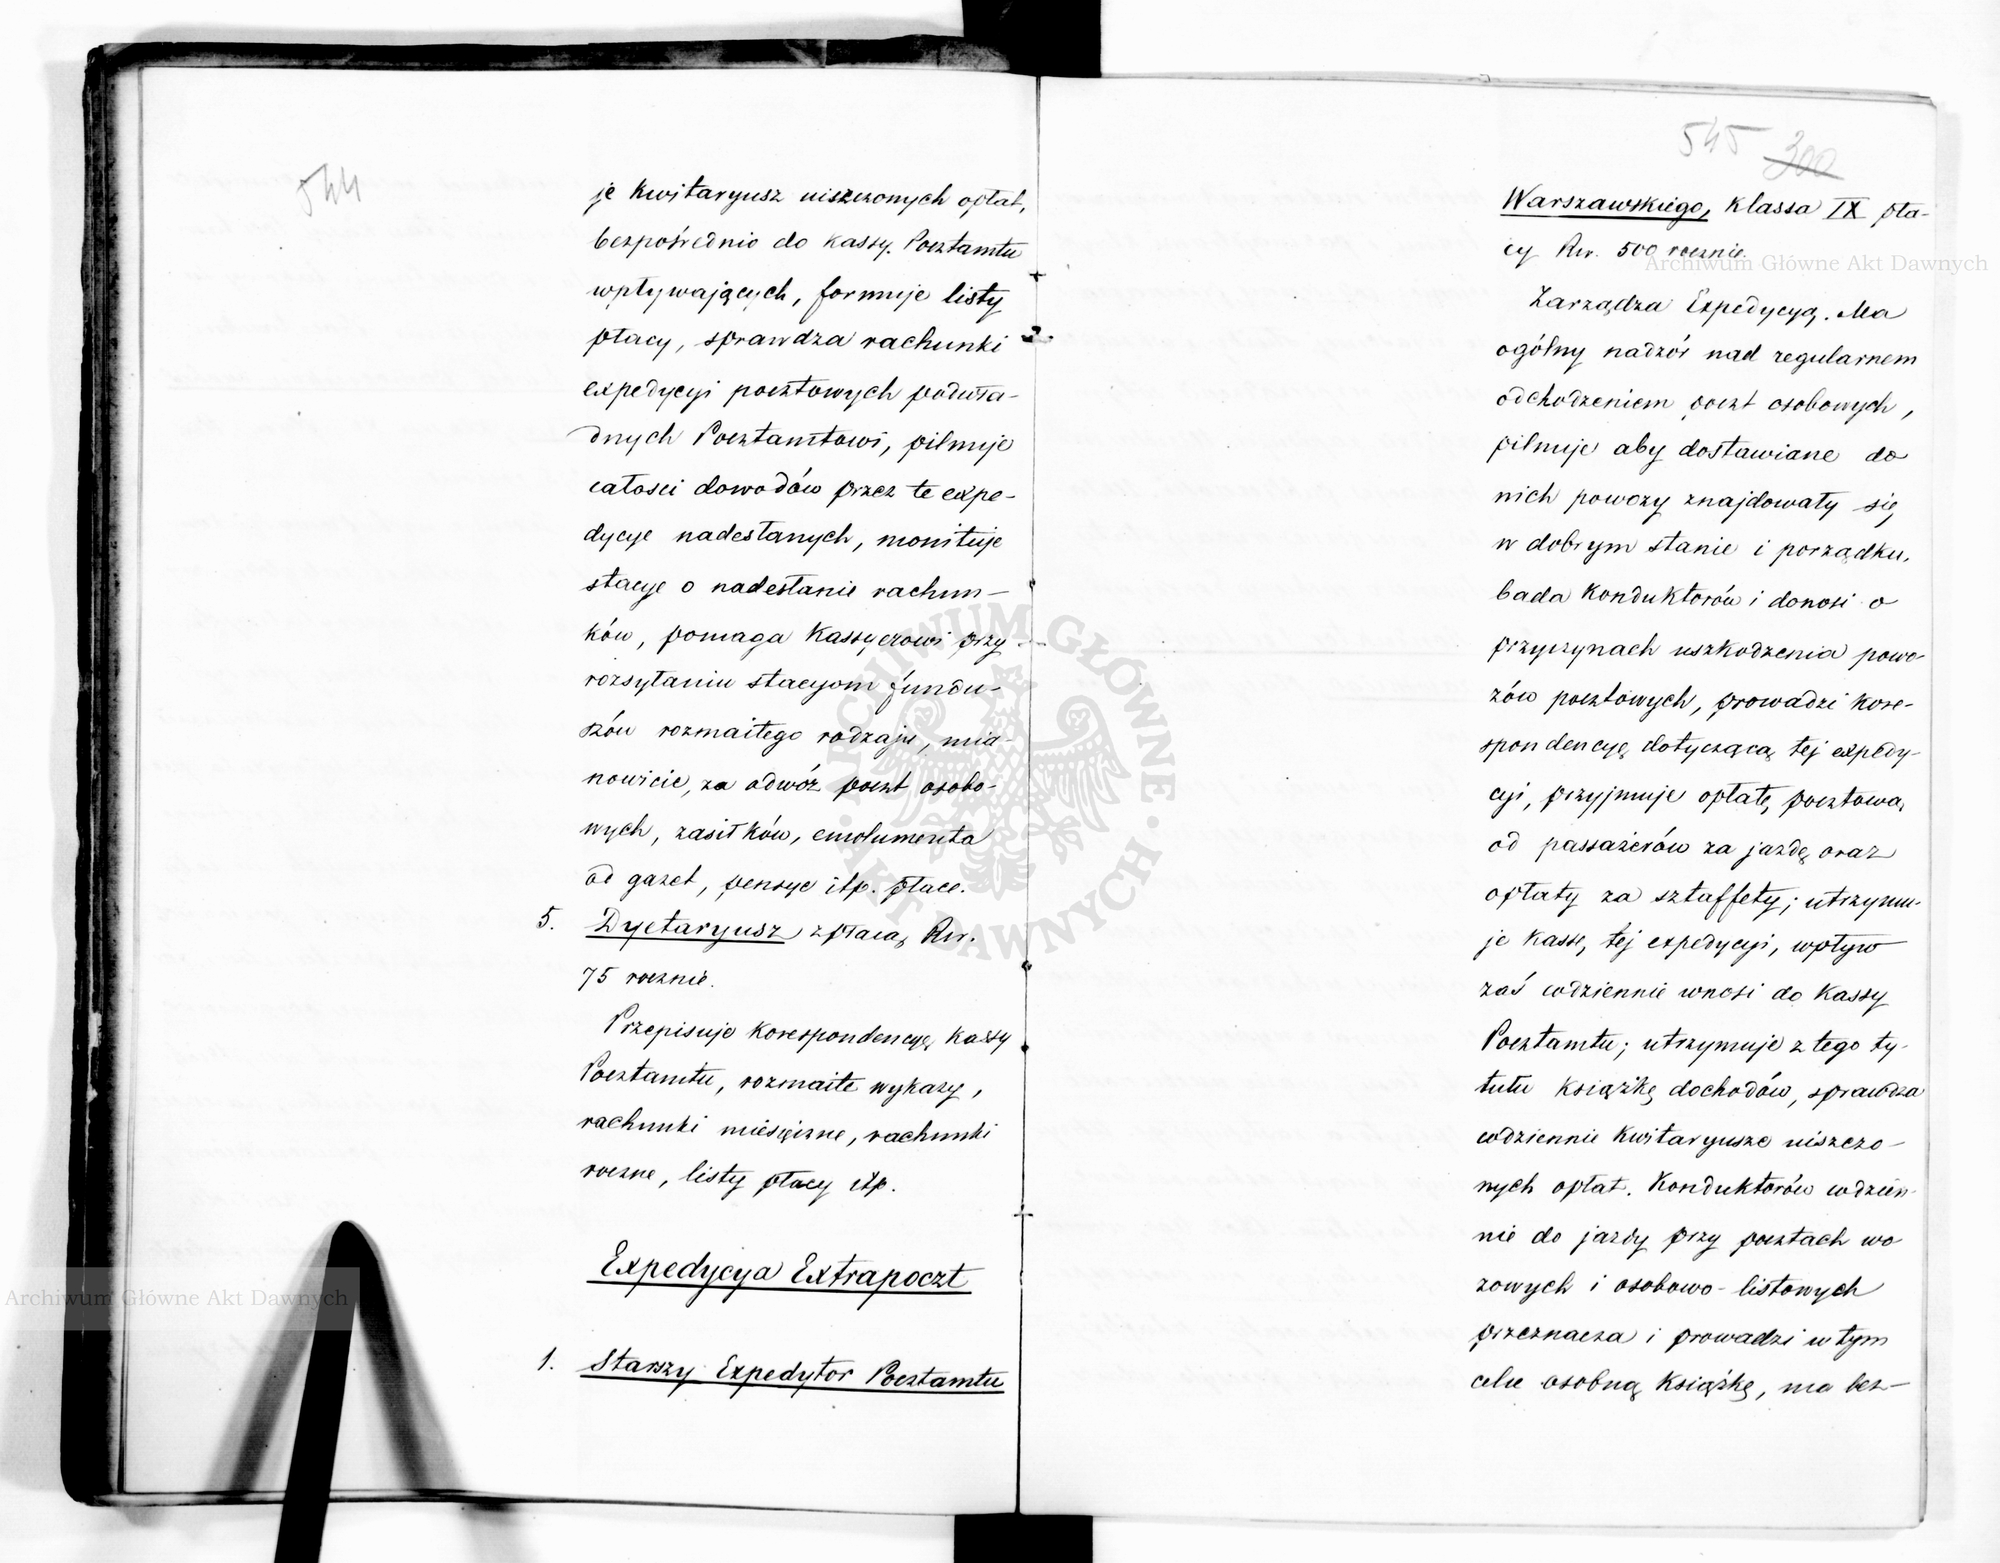 544
je kwitaryusz uiszczonych opłat,
bezpośrednio do kassy Pocztamtu
wpływających, formuje listy
płacy, sprawdza rachunki
expedycyi pocztowych podwła-
dnych Pocztamtowi, pilnuje
całości dowodów przez te expe-
dycye nadesłanych, monituje
stacye o nadesłanie rachun-
ków, pomaga Kassyerowi przy
rozsyłaniu stacyom fundu-
szów rozmaitego rodzaju, mia-
nowicie, za odwóz poczt osobo-
wych, zasiłków, emolumenta
od gazet, pensye itp. płace.
5. Dyetaryusz z płacą Rsr.
75 rocznie.
Przepisuje korespondencyę kassy
Pocztamtu, rozmaite wykazy,
rachunki miesięczne, rachunki
roczne, listy płacy itp.
Expedycya Extrapoczt
1. Starszy Expedytor Pocztamtu
545 300
Warszawskiego, klassa IX pła-
cy Rsr. 500 rocznie.
Zarządza Expedycyą. Ma
ogólny nadzór nad regularnem
odchodzeniem poczt osobowych,
pilnuje aby dostawiane do
nich powozy znajdowały się
w dobrym stanie i porządku,
bada Konduktorów i donosi o
przyczynach uszkodzenia powo-
zów pocztowych, prowadzi kore-
spondencyę dotyczącą tej expedy-
cyi, przyjmuje opłatę pocztową
od passażerów za jazdę oraz
opłaty za sztaffety; utrzymu-
je kassę tej expedycyi, wpływ
zaś codziennie wnosi do Kassy
Pocztamtu; utrzymuje z tego ty-
tułu książkę dochodów, sprawdza
codziennie kwitaryusze uiszczo-
nych opłat. Konduktorów codzien-
nie do jazdy przy pocztach wo
zowych i osobowo-listowych
przeznacza i prowadzi w tym
celu osobną książkę, ma bez-
Archiwum Główne Akt Dawnych
Archiwum Główne Akt Dawnych
ARCHIWUM GŁÓWNE
AKT DAWNYCH